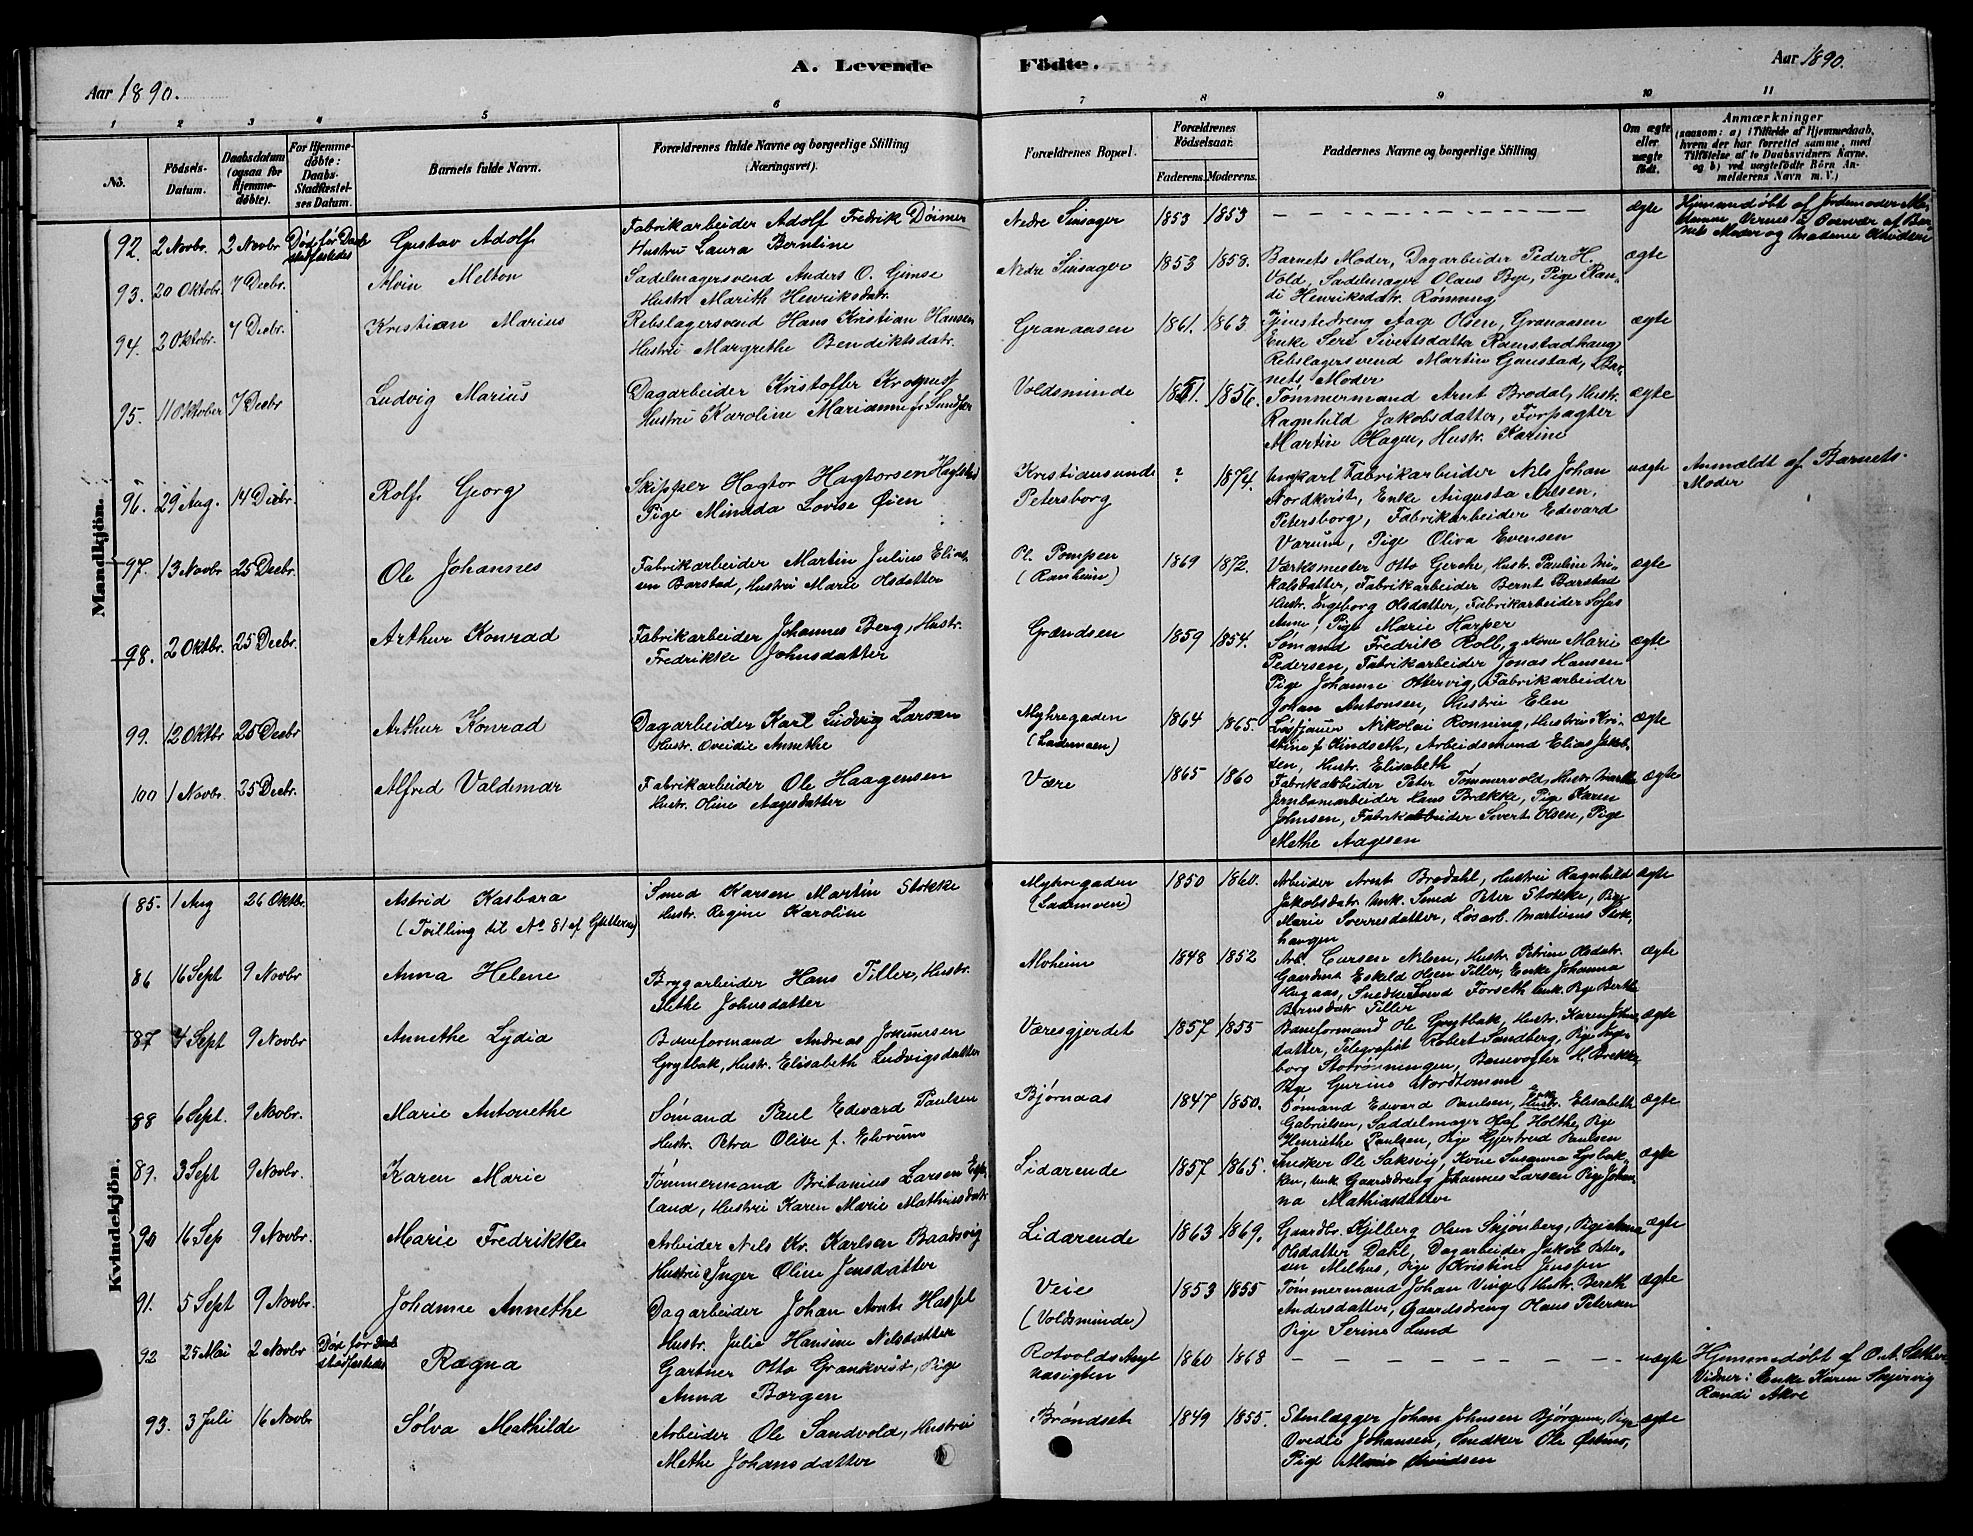 A. Levende Fødte.
Aar 1890.
Aar 1890.
1 2 3 4 5 6 7 8 9 10 11
No.
Fødsels-
Datum.
Daabsdatum
(ogsaa for
Hjemme-
døbte).
For Hjemme-
døbte:
Daabs-
Stadfæstel-
ses Datum.
Barnets fulde Navn.
Forældrenes fulde Navne og borgerlige Stilling
(Næringsvei).
Forældrenes Bopæl.
Forældrenes
Fødselsaar.
Faderens. Moderens.
Faddernes Navne og borgerlige Stilling
Om ægte
eller
uægte
født.
Anmærkninger
(saasom: a) i Tilfælde af Hjemmedaab,
hvem der har forrettet samme, med
Tilføielse af to Daabsvidners Navne,
og b) ved uægtefødte Børn An-
melderens Navn m. V.)
Mandkjøn.
92. 2 Novbr. 2 Novbr Død før Daab
stadfæstedes
Gustav Adolf
Fabrikarbeider Adolf Fredrik Döimer
Hustru Laura Berntine
Nedre Sinsager 1853 1853 ægte
Hjemmedøbt af Jordemoder
93. 20 Oktobr. 7 Decbr.
Alvin Melton
Sadelmagersvend Anders O. Gimse
Hustr. Marith Henriksdatr.
Nedre Sinsager 1853 1858.
Barnets Moder, Dagarbeider Peder H.
Vold, Sadelmager Olaus Bye, Pige Ran-
di Henriksdatr. Rømung
ægte
94. 2 Oktobr. 7 Decbr.
Kristian Marius
Rebslagersvend Hans Kristian Hansen
Hustru Margrethe Bendiktsdatr.
Granaasen 1861. 1863
Tjenestedreng Aage Olsen, Granaasen
Enke Seri Sivertsdatter Ranstadhaug
Rebslagersvend Martin Granstad, Bar-
nets Moder
ægte
95. 11 Oktober 7 Decbr
Ludvig Marius
Dagarbeider Kristoffer
Hustru Karoline Marianne f.
Voldsminde 1851. 1856.
Tømmermand Arnt Brodal, Hustr.
Ragnhild Jakobsdatter, Forpagter
Martin Hagen, Hustr. Karine
ægte
96. 29 Aug. 14 Decbr.
Rolf Georg
Skipper Hagtor Hagtorsen
Pige Minda Lovise Øien
Kristiansund
Petersborg
? 1874.
Ungkarl Fabrikarbeider Nils Johan
Nordkvist, Enke Augusta Nilsen,
Petersborg, Fabrikarbeider Edevard
Varum, Pige Oliva Evensen
uægte
Anmældt af Barnets
Moder
97. 13 Novbr 25 Decbr.
Ole Johannes
Fabrikarbeider Martin Julius Elias-
en Barstad, Hustru Marie Olsdatter
Pl. Pompen
(Ranheim)
1869 1872.
Værksmester Otto Gerche, Hustr. Pauline Mi-
kalsdatter, Fabrikarbeider Bernt Barstad
Hustr. Ingeborg Olsdatter, Fabrikarbeider Sofus
Aune, Pige Marie Harper
ægte
98. 2 Oktbr. 25 Decbr.
Arthur Konrad
Fabrikarbeider Johannes Berg, Hustr.
Fredrikke Johnsdatter
Grændsen 1859 1854.
Sømand Fredrik Roll, g Kone Marie
Pedersen, Fabrikarbeider Jonas Hansen
Pige Johanne Ottervig, Fabrikarbeider
Johan Antonsen, Hustru Elen
ægte
99. 12 Oktbr 25 Decbr
Arthur Konrad
Dagarbeider Karl Ludvig Larsen
Hustr. Ovedie Annethe
Myhregaden
(Lademoen)
1864 1865.
Løstjener Nikolai Rønning, Hustru Kri-
stine f Kindseth, Arbeidsmand Elias Jakob-
sen, Hustr. Elisabeth
ægte
100 1 Novbr. 25 Decbr.
Alfred Valdemar
Fabrikarbeider Ole Haagensen
Hustr. Oline Aagesdatter
Være 1865 1860
Fabrikarbeider Peter Tømmervold, Hustr. Marthe
Jernbanearbeider Hans Brække, Pige Karen
Johnsen, Fabrikarbeider Sivert Olsen, Pige
Methe Aagesen
ægte
Kvindekjøn.
85. 1 Aug 26 Oktbr.
Astrid Kasbara
(Tvilling til No 81 af Gutterne)
Smed Karsen Martin Stokke
Hustr. Regine Karoline
Myhregaden
(Lademoen)
1850 1860.
Arbeider Arnt Brodahl, Hustru Ragnhild
Jakobsdatr. Unk. Smed Peter Stokke, Pige
Marie Sverresdatter, Løsarb. Martinus Stok-
haugen
ægte
86 16 Sept 9 Novbr
Anna Helene
Brygarbeider Hans Tiller, Hustr.
Methe Johnsdatter
Moheim 1848 1852
Arb. Cursen Nilsen, Hustr. Petrine Olsdatr.
Gaardmd. Eskild Olsen Tiller, Enke Johanna
Hugaas, Snedkersvend Forseth Unk. Pige Berthe
Berntsdatr Tiller
ægte
87 4 Sept 9 Novbr
Annethe Lydia
Baneformand Andreas Jokumsen
Grytbak, Hustr. Elisabeth Ludvigsdatter
Væresgjerdet 1857 1855
Baneformand Ole Grytbak, Hustr. Karen Johns-
datter, Telegrafist Robert Sandberg, Pige Inge-
borg Storrønningen, Banevogter H. Brække
Pige Gurine Nordtømme
ægte
88 6 Sept. 9 Novbr.
Marie Antonethe
Sømand Paul Edevard Paulsen
Hustr. Petra Olive f. Elverum
Bjørnaas 1847 1850.
Sømand Edevard Paulsen, Enke Elisabeth
Gabrielsen, Saddelmager Olaf Holthe, Pige
Henriethe Paulsen, Pige Gjertrud Paulsen
ægte
89. 3 Sept 9 Novbr
Karen Marie
Tømmermand Britanius Larsen Esp-
land, Hustru Karen Marie Mathiasdatr
Lidarende 1857 1865.
Snedker Ole Saksvig, Kone Susanna Lysbak-
ken, Unk. Gaardsdreng Johannes Larsen Pige Johan-
na Mathiasdatter
ægte
90 16 Sep 9 Novbr.
Marie Fredrikke
Arbeider Nils Kr. Karlsen Baadsvig
Hustru Inger Oline Jensdatter
Lidarende 1863 1869.
Gaardbr. Kjelberg Olsen Skjønberg, Pige Anna
Olsdatter Dahl, Dagarbeider Jakob Peter-
sen Melhus, Pige Kristine Jenssen
ægte
91. 5 Sept 9 Novbr.
Johanne Annethe
Dagarbeider Johan Arnt Hassel
Hustr. Julie Hansine Nilsdatter
Veie
(Voldsminde)
1853 1855
Tømmermand Johan Vinge, Hustr. Bereth
Andersdatter, Gaardsdreng Olaus Petersen
Pige Serine Lund
ægte
92 25 Mai 2 Novbr Død før Daab
stadfæstedes
Ragna
Gartner Otto Grankvist, Pige
Anna Borgen
Rotvolds Asyl
1860 1868 uægte
Hjemmedøbt af O. A. Sæther
Vidner: Enke Karen Skjervig
Randi Akre
93. 3 Juli 16 Novbr
Sølva Mathilde
Arbeider Ole Sandvold, Hustru
Methe Johansdatter
Brøndset 1849 1855.
Stenlægger Johan Johnsen Bjørgum, Pige
Ovedie Johansen, Snedker Ole Østmo,
Pige Marie Svendsen
ægte